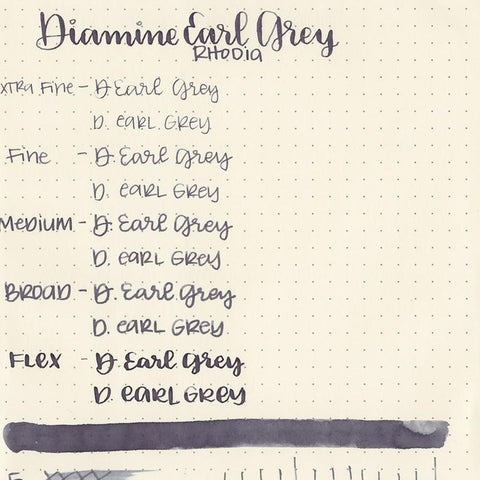 Diamine Earl Grey
RHODIA
XTRA FINE - D. Earl Grey
D. EARL GREY
FINE - D. Earl Grey
D. EARL GREY
MEDIUM - D. Earl Grey
D. EARL GREY
BROAD - D. Earl Grey
D. EARL GREY
FLEX - D. Earl Grey
D. EARL GREY